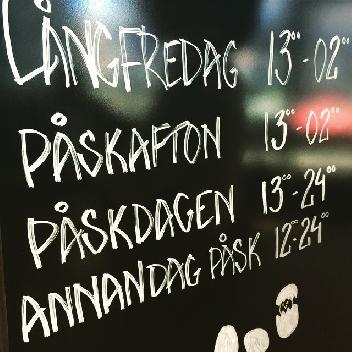 LÅNGFREDAG 13⁰⁰-02⁰⁰
PÅSKAFTON 13⁰⁰-02⁰⁰
PÅSKDAGEN 13⁰⁰-24⁰⁰
ANNANDAG PÅSK 12⁰⁰-24⁰⁰